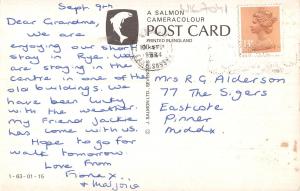 Sept 9th
Dear Grandma,
We are
enjoying our short
stay in Rye. We
are stay in the
centre in one of the
old buildings. We
have been lucky
with the weather.
My friend Jackie
has come with us.
Hope to go for
walk tomorrow.
Love From
Fiona x
& Marjorie
1-63-01-15
A SALMON
CAMERACOLOUR
POST CARD
PRINTED IN ENGLAND
1984
Mrs R G Alderson
77 The Sigers
Eastcote
Pinner
Middx.